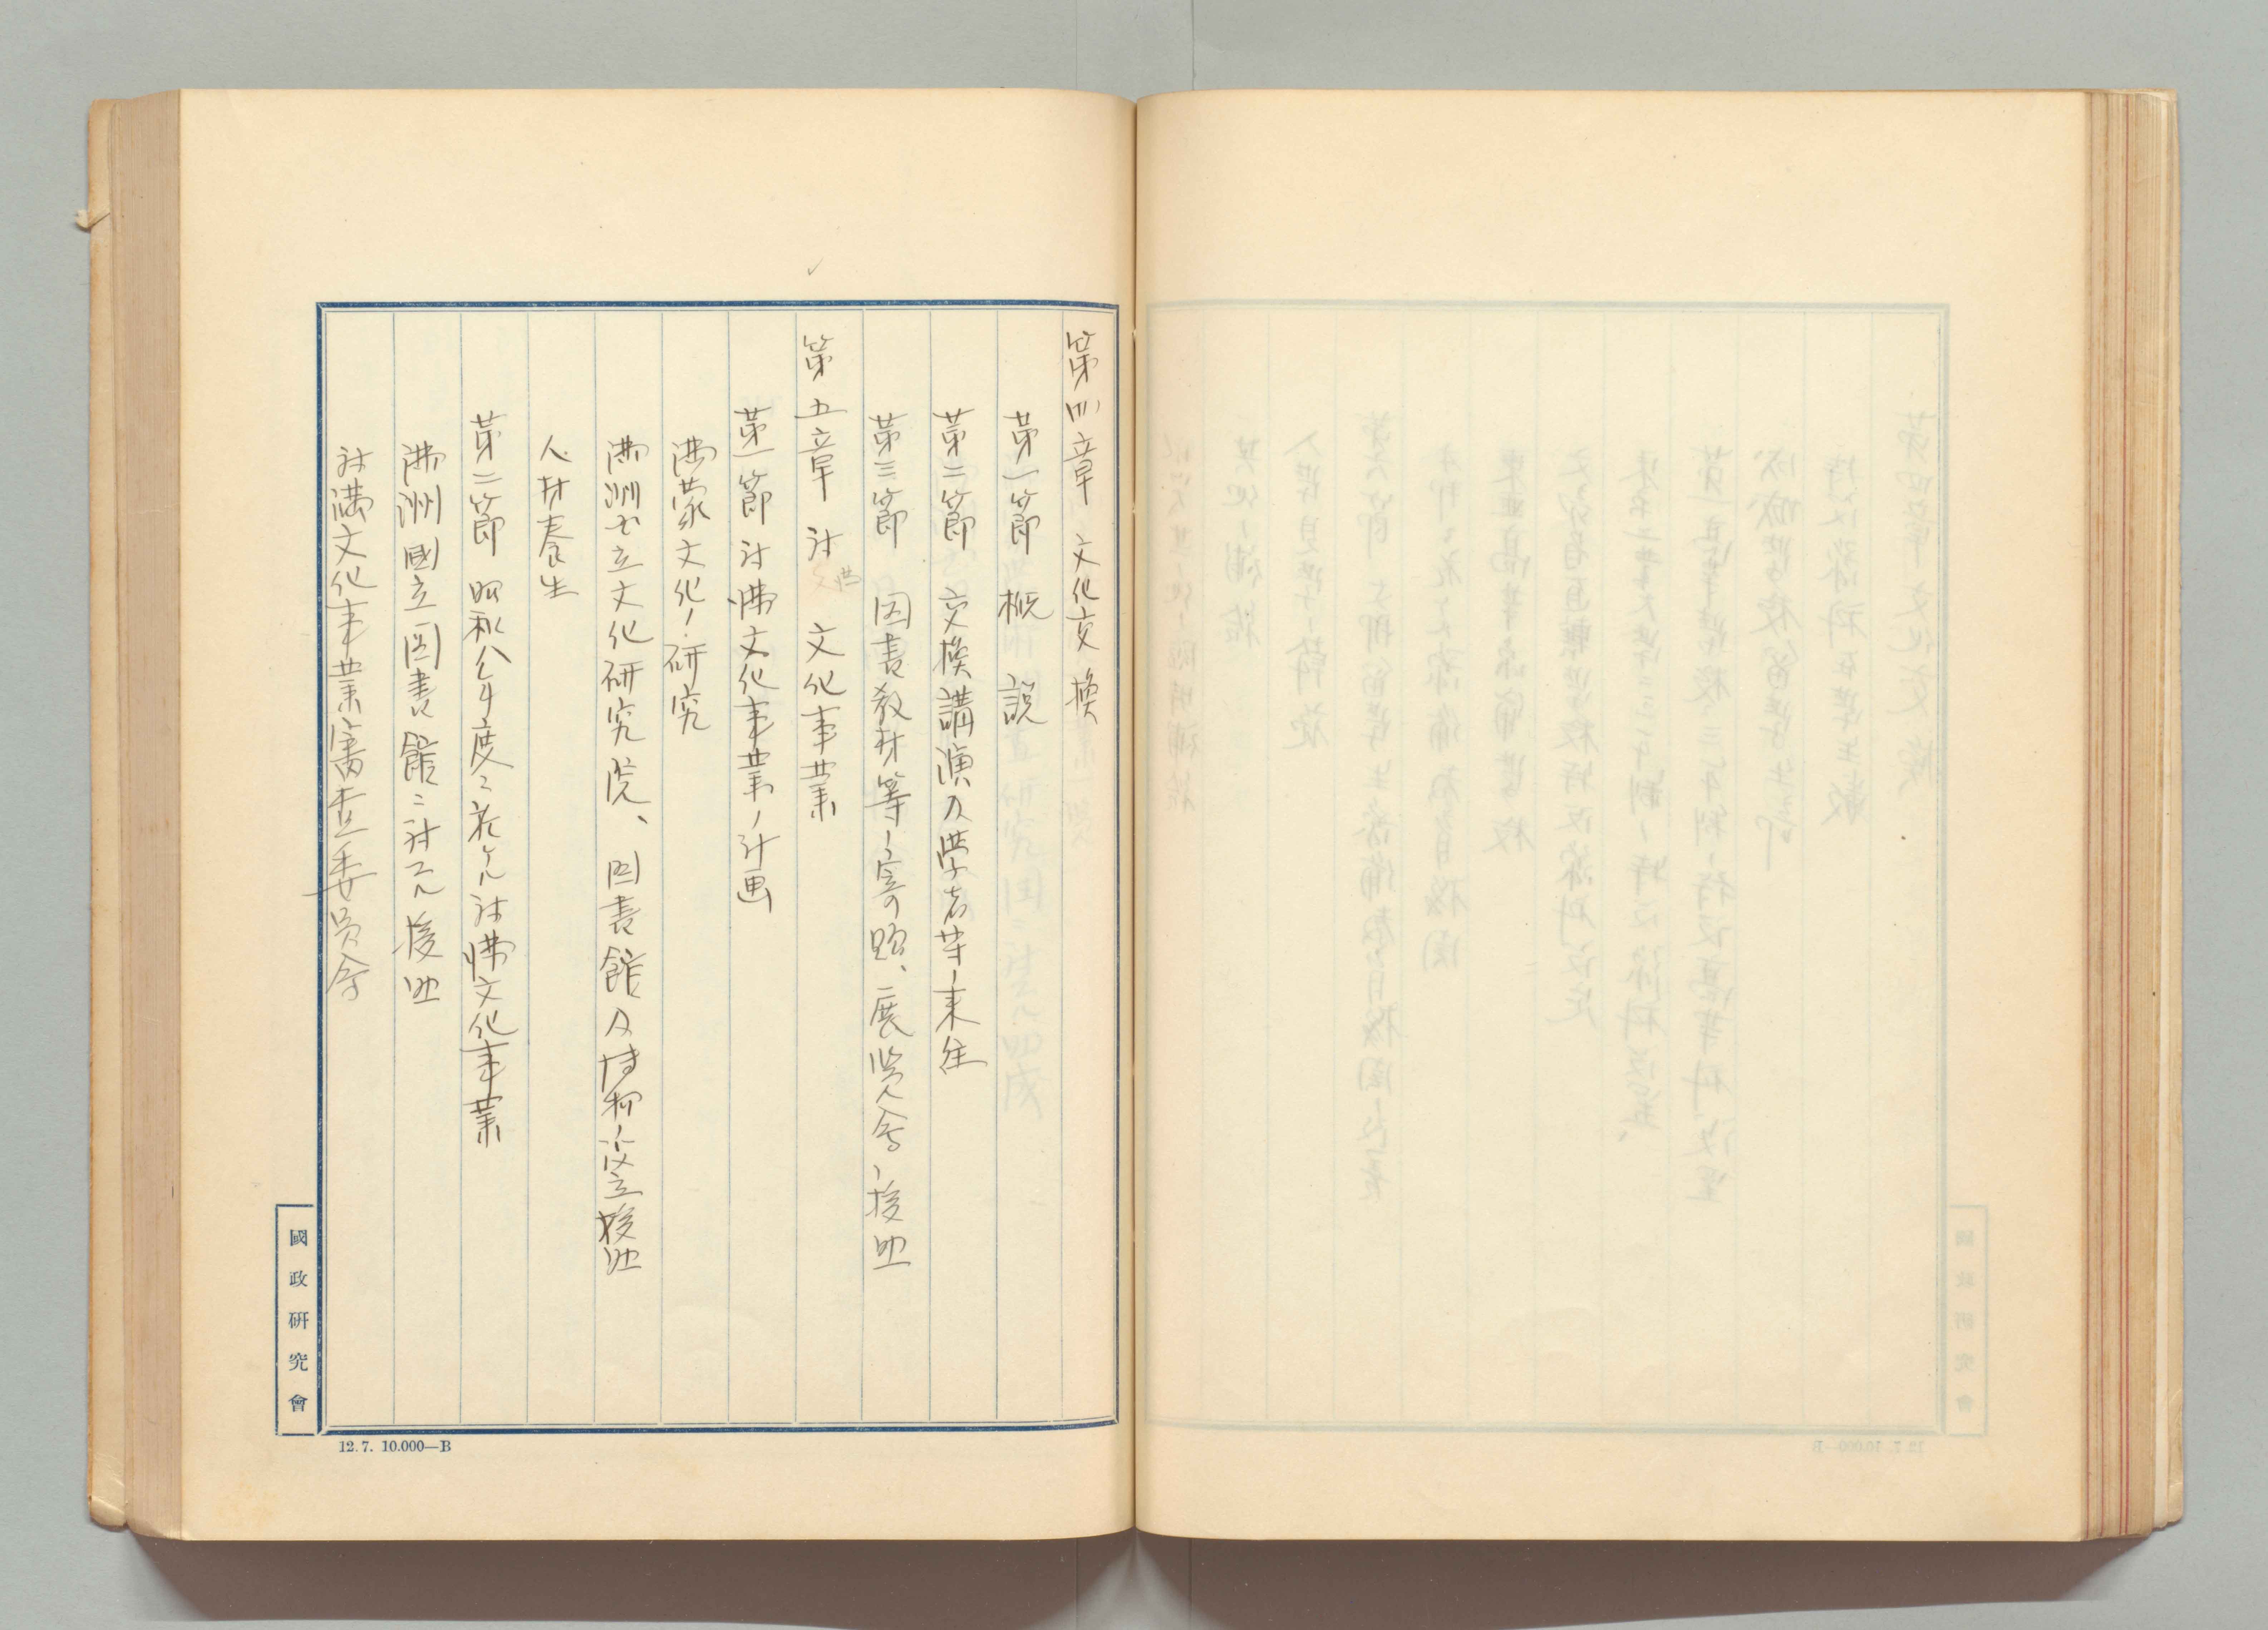 第四章　文化交換
第一節　概説
第二節　交換講演及学者等ノ来往
第三節　図書教材等ノ寄贈、展覧会ノ援助
第五章　対満文化事業
第一節　対満文化事業ノ計画
満蒙文化ノ研究
満洲国立文化研究院、図書館及博物館設立援助
人材養生
第二節　昭和八年度ニ於ケル対満文化事業
満洲國立図書館ニ対スル援助
対満文化事業審査委員会
國政研究會
12. 7. 10.000—B